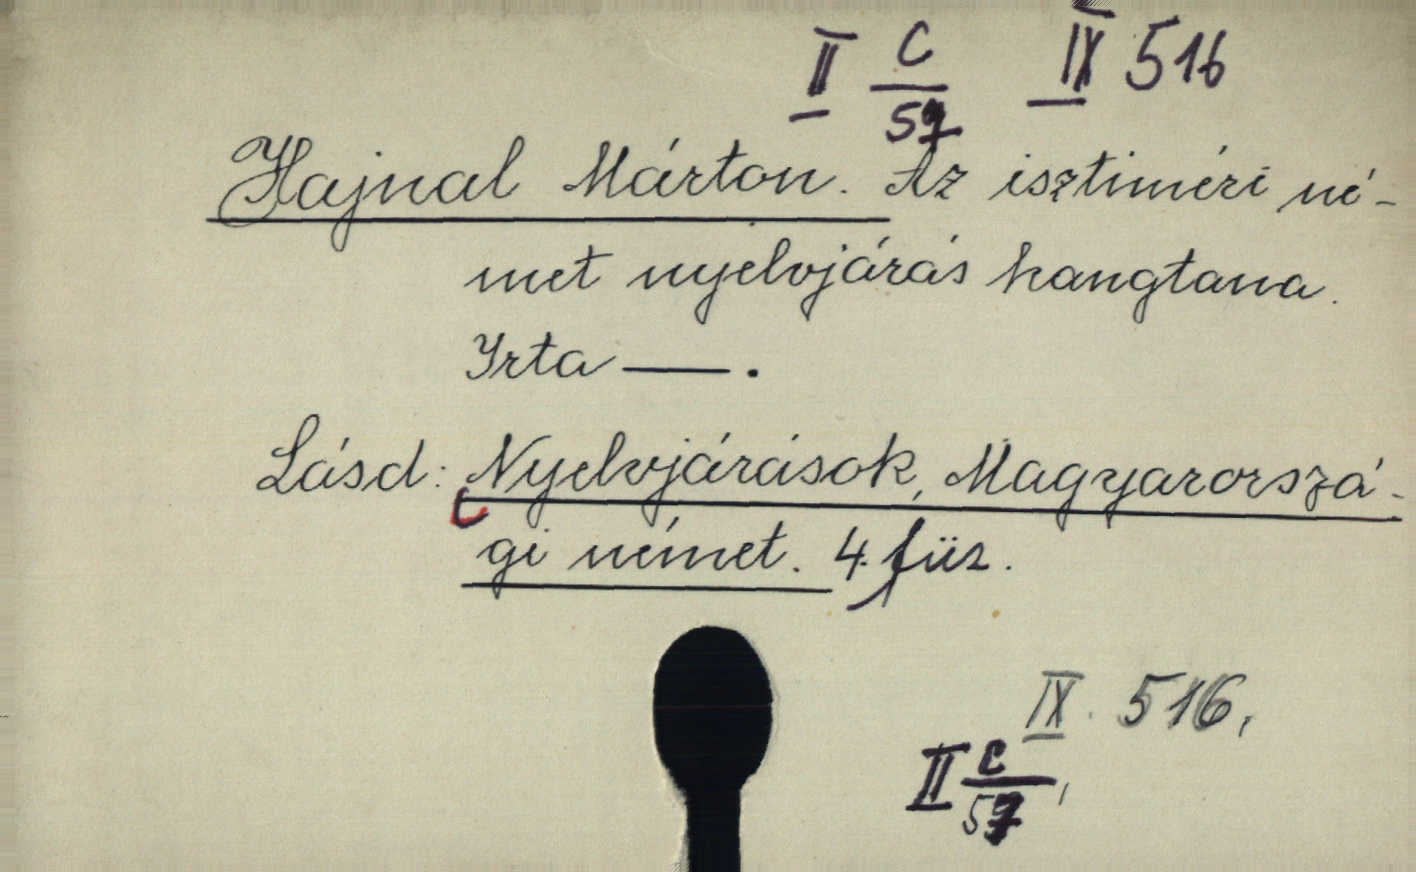 II C/57 IX 516
Hajnal Márton. Az isztiméri né-
met nyelvjárás hangtana.
Irta —.
Lásd: Nyelvjárások, Magyarorszá-
gi német. 4. füz.
IX. 516,
II C/57,